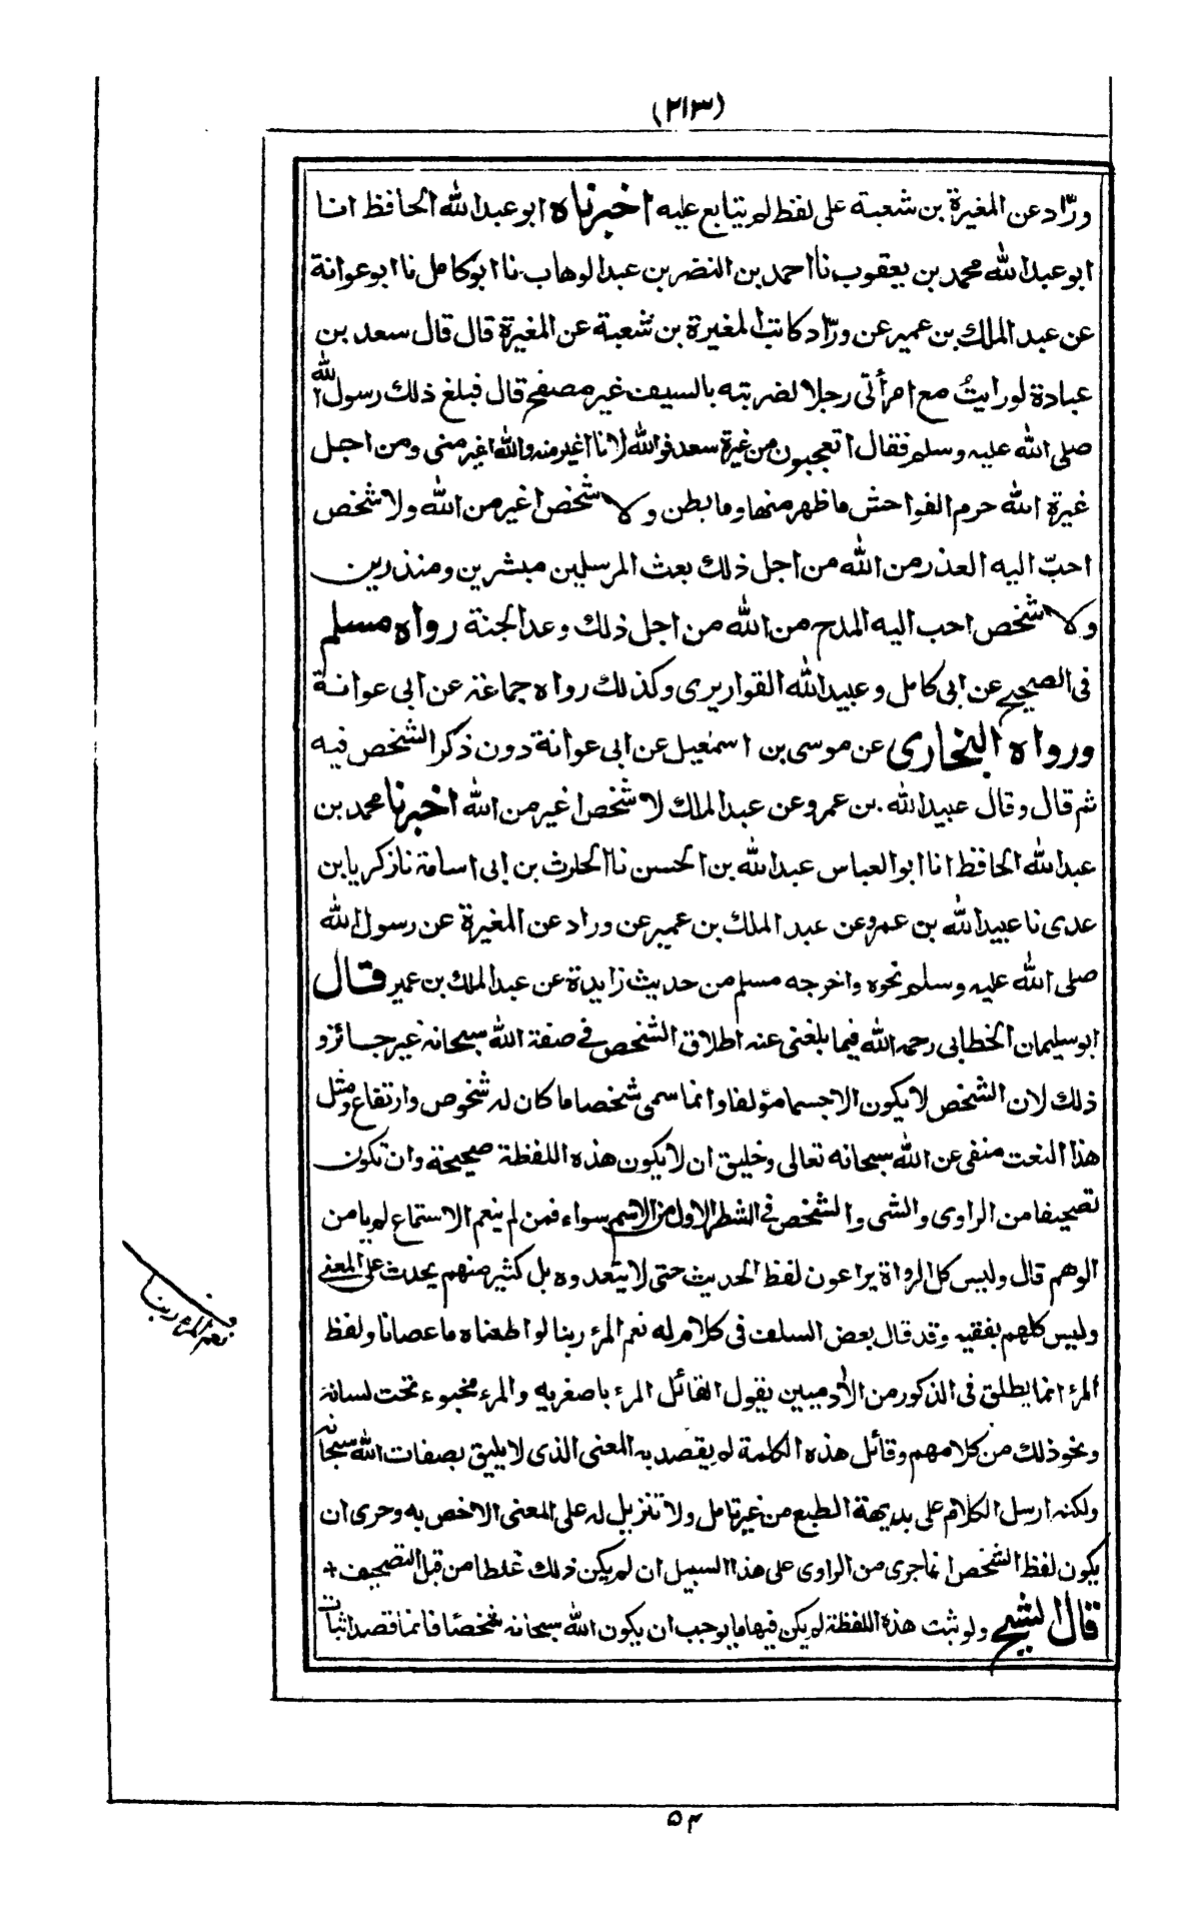 (٢١٣)
ورّاد عن المغيرة بن شعبة على لفظ لم يتابع عليه اخبرناه ابو عبد الله الحافظ انا
ابو عبد الله محمد بن يعقوب نا احمد بن النضر بن عبد الوهاب نا ابو كامل نا ابو عوانة
عن عبد الملك بن عمير عن ورّاد كاتب المغيرة بن شعبة عن المغيرة قال قال سعد بن
عبادة لو رايتُ مع امرأتى رجلا لضربته بالسيف غير مصفح قال فبلغ ذلك رسول الله
صلى الله عليه وسلم فقال اتعجبون من غيرة سعد فوالله لانا اغير منه والله اغير منى ومن اجل
غيرة الله حرم الفواحش ما ظهر منها وما بطن ولا شخص اغير من الله ولا شخص
احبّ اليه العذر من الله من اجل ذلك بعث المرسلين مبشرين ومنذرين
ولا شخص احب اليه المدح من الله من اجل ذلك وعد الجنة رواه مسلم
فى الصحيح عن ابى كامل وعبيد الله القواريرى وكذلك رواه جماعة عن ابى عوانة
ورواه البخارى عن موسى بن اسمعيل عن ابى عوانة دون ذكر الشخص فيه
ثم قال وقال عبيد الله بن عمرو عن عبد الملك لا شخص اغير من الله اخبرنا محمد بن
عبد الله الحافظ انا ابو العباس عبد الله بن الحسن نا الحارث بن ابى اسامة نا زكريا بن
عدى نا عبيد الله بن عمرو عن عبد الملك بن عمير عن وراد عن المغيرة عن رسول الله
صلى الله عليه وسلم نحوه واخرجه مسلم من حديث زايدة عن عبد الملك بن عمير قال
ابو سليمان الخطابى رحمه الله فيما بلغنى عنه اطلاق الشخص فى صفة الله سبحانه غير جائز و
ذلك لان الشخص لا يكون الا جسما مؤلفا وانما سمى شخصا ما كان له شخوص وارتفاع ومثل
هذا النعت منفى عن الله سبحانه تعالى وخليق ان لا يكون هذه اللفظة صحيحة وان تكون
تصحيفا من الراوى والشى والشخص فى الشطر الاول من الاسم سواء فمن لم ينعم الاستماع لم يامن
الوهم قال وليس كل الرواة يراعون لفظ الحديث حتى لا يتعدوه بل كثير منهم يحدث على المعنى
وليس كلهم بفقيه وقد قال بعض السلف فى كلام له نعم المرء ربنا لو اطعناه ما عصانا ولفظ
المرء انما يطلق فى الذكور من الأدميين يقول القائل المرء باصغريه والمرء مخبوء تحت لسانه
ونحو ذلك من كلامهم وقائل هذه الكلمة لم يقصد به المعنى الذى لا يليق بصفات الله سبحانه
ولكنه ارسل الكلام على بديهة الطبع من غير تامل ولا تنزيل له على المعنى الاخص به وحرى ان
يكون لفظ الشخص انما جرى من الراوى على هذا السبيل ان لم يكن ذلك غلطا من قبل التصحيف +
قال الشيخ ولو ثبت هذه اللفظة لم يكن فيها ما يوجب ان يكون الله سبحانه شخصًا فانما قصد اثبات
نعم المرء ربنا
٥٤